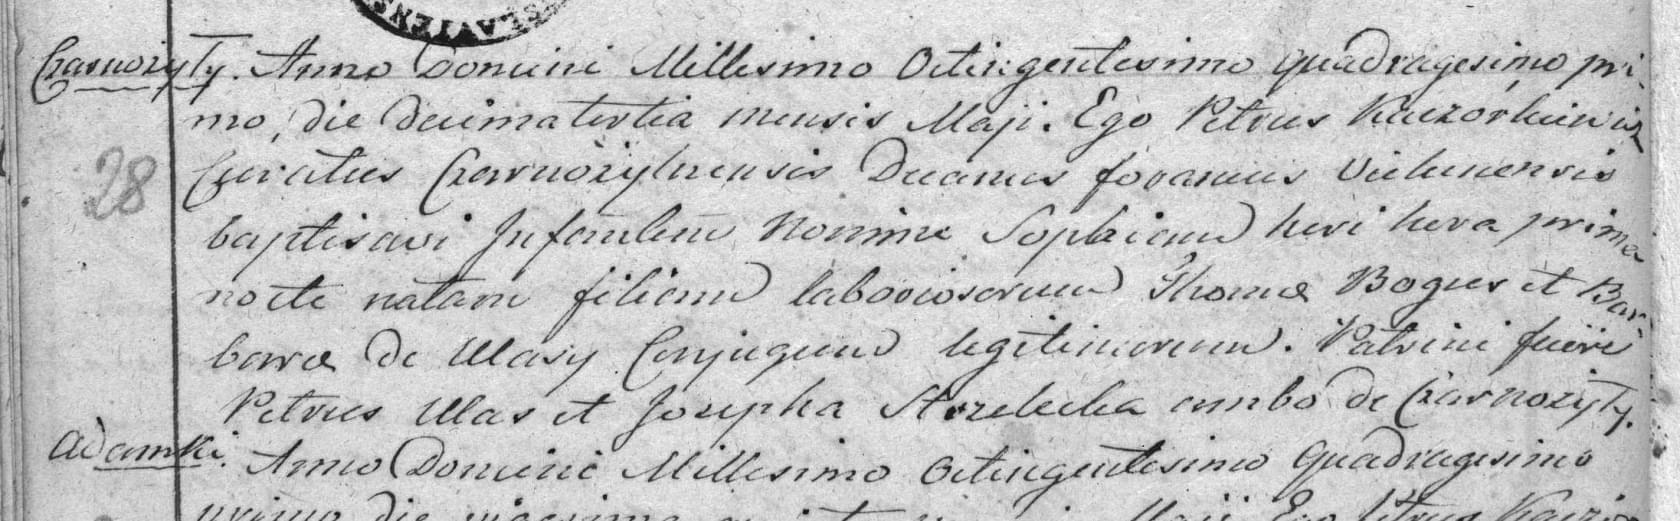 Czarnożyły. Anno Domini Millesimo Octingentesimo quadragesimo pri-
mo, die decimatertia mensis Maji. Ego Petrus
28
Curatus Czarnożylnensis Decanus foraneus Vielunensis
baptisavi Infantem Nomine Sophiam heri hora prima
nocte natam filiam laboriosorum Thomæ Bogus et Bar-
baræ de Ulasy Conjugum legitimorum. Patrini fuere
Petrus Ulas et Josepha Strzelecka ambo de Czarnożyły.
Adamki. Anno Domini Millesimo Octingentesimo quadragesimo
primo die vigesima Maji Ego Petrus